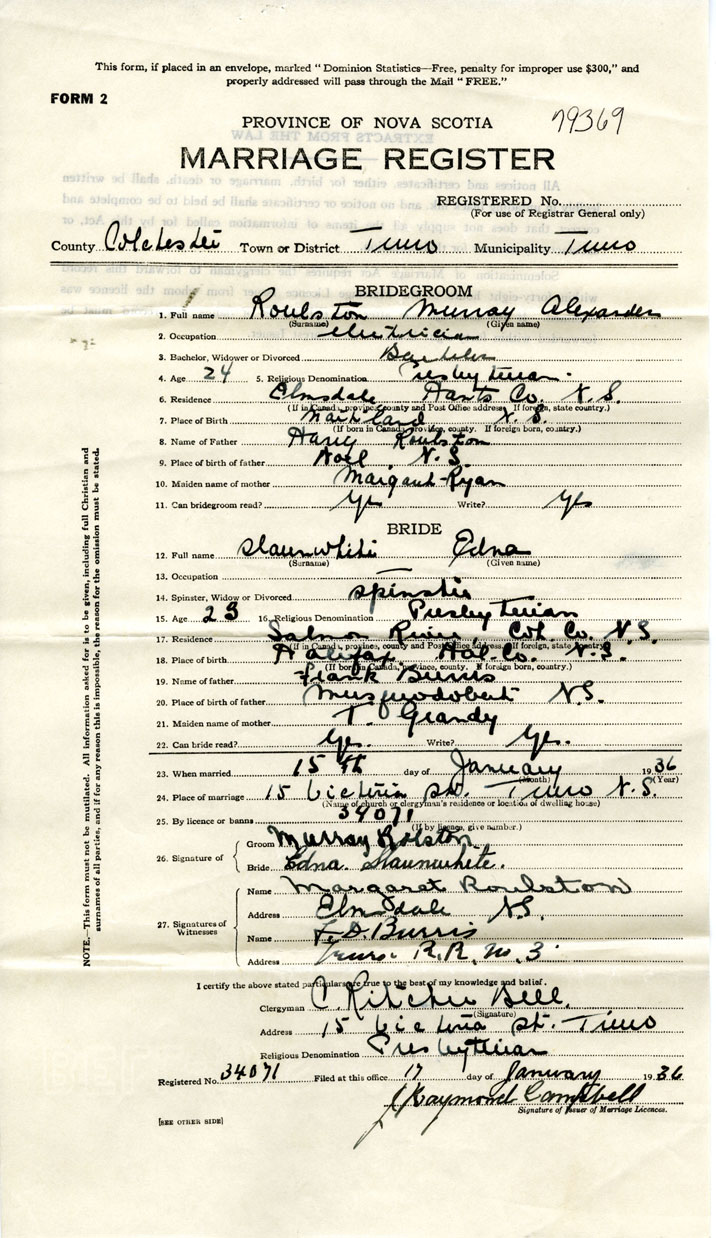 This form, if placed in an envelope, marked "Dominion Statistics—Free, penalty for improper use $300," and
properly addressed will pass through the Mail "FREE."
FORM 2
PROVINCE OF NOVA SCOTIA 79369
MARRIAGE REGISTER
REGISTERED No.
(For use of Registrar General only)
County Colchester Town or District Truro Municipality Truro
BRIDEGROOM
1. Full name Roulston Murray Alexander
(Surname) (Given name)
2. Occupation electrician
3. Bachelor, Widower or Divorced Bachelor
4. Age 24 5. Religious Denomination Presbyterian.
6. Residence Elmsdale Hants Co. N.S.
(If in Canada, province, county and Post Office address. If foreign, state country.)
7. Place of Birth Maitland N.S.
(If born in Canada, province, county. If foreign born, country.)
8. Name of Father Harry Roulston
9. Place of birth of father Noel, N.S.
10. Maiden name of mother Margaret Ryan
11. Can bridegroom read? Yes Write? Yes
BRIDE
12. Full name Slaunwhite Edna
(Surname) (Given name)
13. Occupation
14. Spinster, Widow or Divorced spinster
15. Age 23 16. Religious Denomination Presbyterian
17. Residence Salmon River, Col. Co. N.S.
(If in Canada, province, county and Post Office address. If foreign, state country)
18. Place of birth Halifax Hal. Co. N.S.
(If born in Canada, province, county. If foreign born, country.)
19. Name of father Frank Burris
20. Place of birth of father Musquodoboit N.S.
21. Maiden name of mother T. Grandy
22. Can bride read? Yes. Write? Yes.
23. When married 15th day of January 1936
(Month) (Year)
24. Place of marriage 15 Victoria St. Truro N.S.
(Name of church or clergyman's residence or location of dwelling house)
25. By licence or banns 34071
(If by licence, give number.)
26. Signature of Groom Murray Rolston
Bride Edna Slaunwhite.
27. Signatures of Witnesses Name Margaret Roulston
Address Elmsdale N.S.
Name F. D. Burris
Address Truro R.R. No. 3
I certify the above stated particulars are true to the best of my knowledge and belief.
Clergyman C. Ritchie Bell.
(Signature)
Address 15 Victoria St. Truro
Religious Denomination Presbyterian
Registered No. 34071 Filed at this office 17 day of January 1936
J Raymond Campbell
Signature of Issuer of Marriage Licences.
[SEE OTHER SIDE]
NOTE.—This form must not be mutilated. All information asked for is to be given, including full Christian and
surnames of all parties, and if for any reason this is impossible, the reason for the omission must be stated.